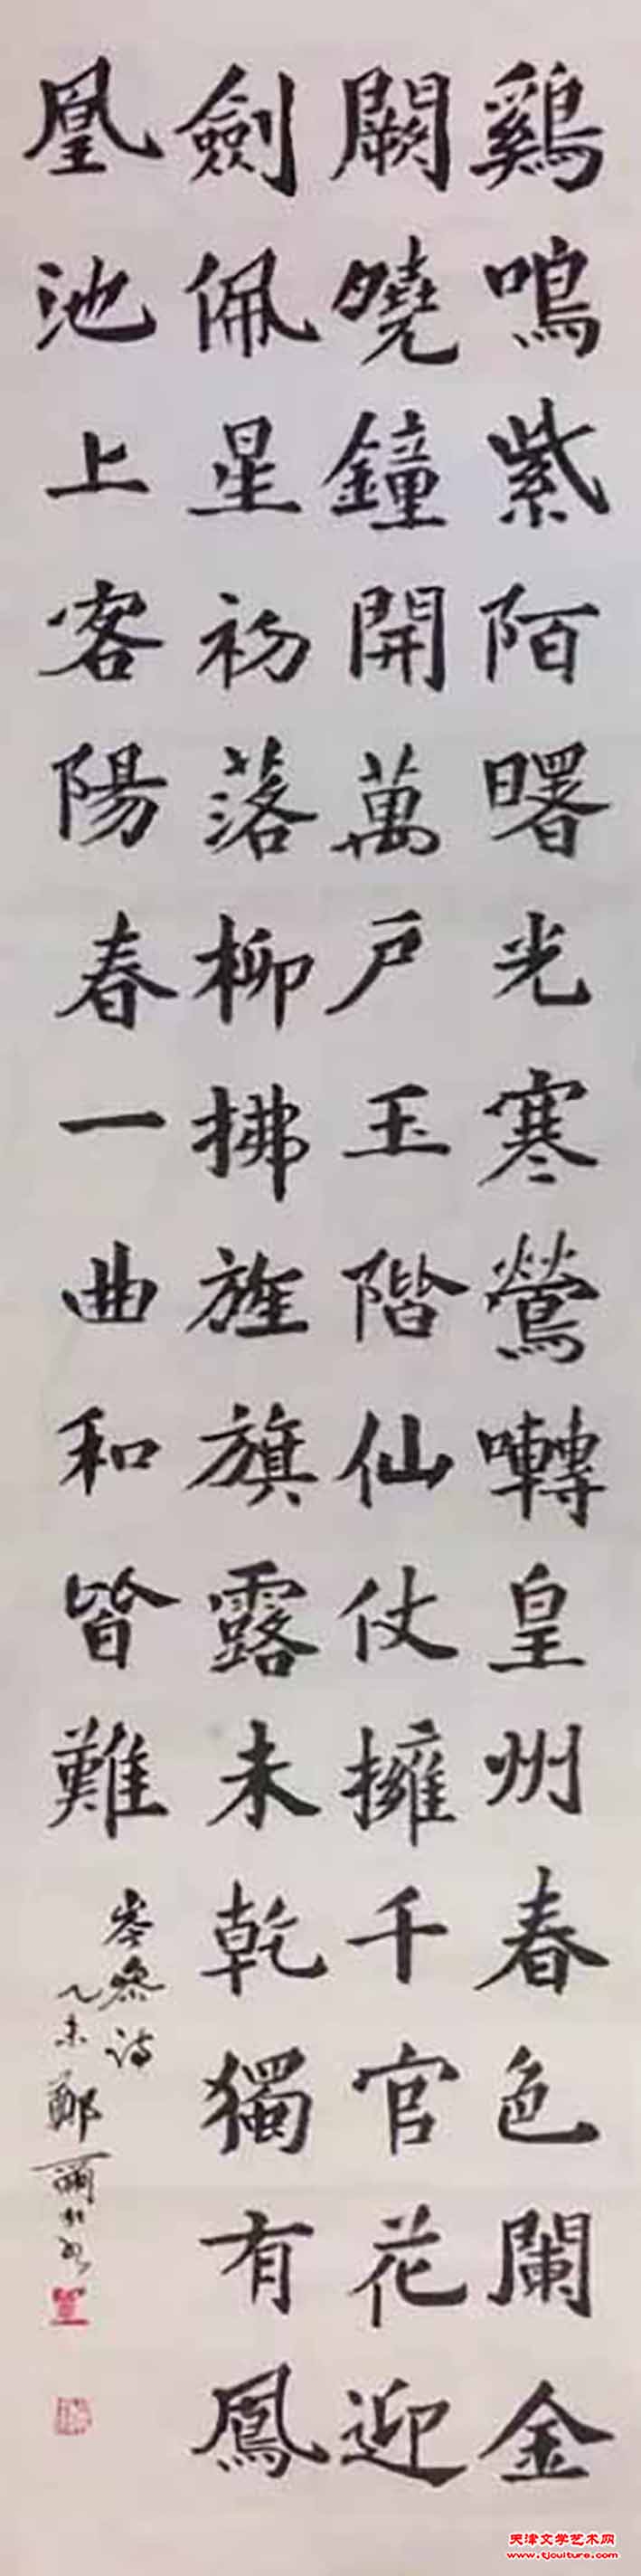 鷄鳴紫陌曙光寒鶯囀皇州春色闌金
闕曉鐘開萬戸玉階仙仗擁千官花迎
劍佩星初落柳拂旌旗露未乾獨有鳳
凰池上客陽春一曲和皆難
岑參詩
乙未鄭爾
天津文学艺术网
www.tjculture.com